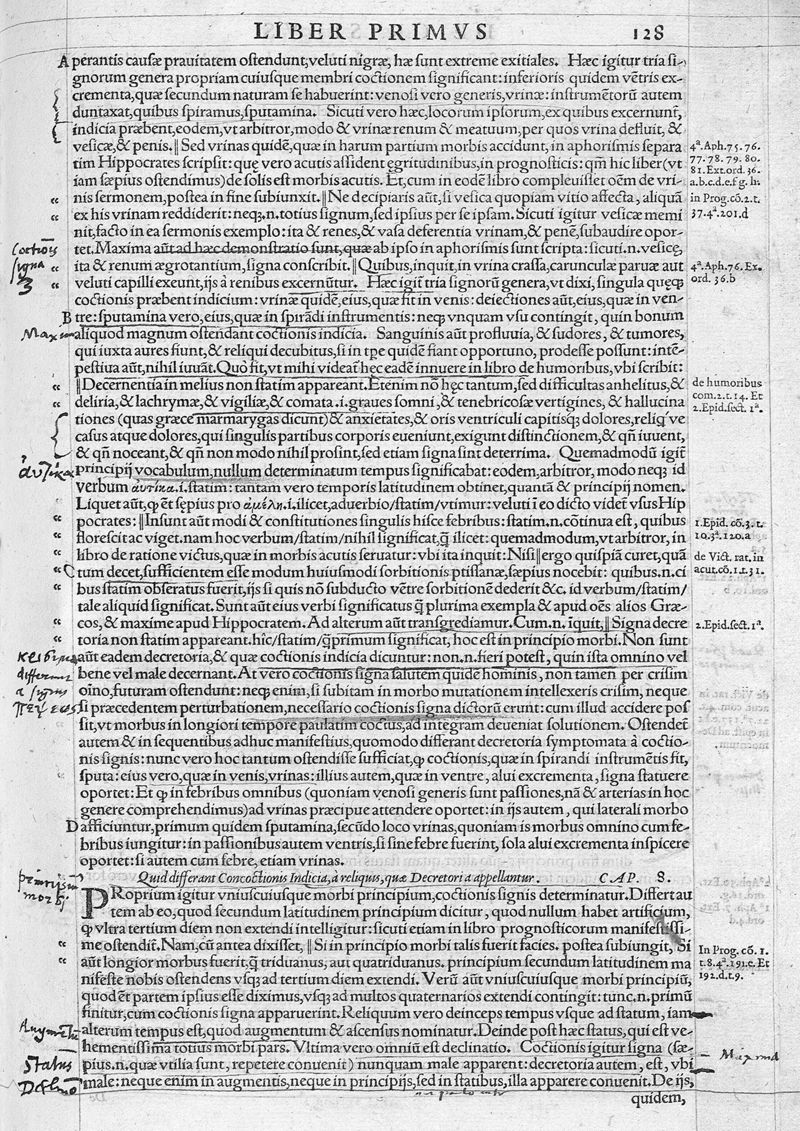 LIBER PRIMVS 128
A perantis causæ prauitatem ostendunt, veluti nigræ, hæ sunt extreme exitiales. Hæc igitur tria si-
gnorum genera propriam cuiusque membri coctionem significant: inferioris quidem vētris ex-
crementa, quæ secundum naturam se habuerint: venosi vero generis, vrinæ: instrumētorū autem
duntaxat, quibus spiramus, sputamina. Sicuti vero hæc, locorum ipsorum, ex quibus excernunt̃,
indicia præbent, eodem, vt arbitror, modo & vrinæ renum & meatuum, per quos vrina defluit, &
vesicæ, & penis. ‖ Sed vrinas quidē, quæ in harum partium morbis accidunt, in aphorismis separa
tim Hippocrates scripsit: quę vero acutis assident ęgritudinibus, in prognosticis: qm̃ hic liber (vt
iam sæpius ostendimus) de solis est morbis acutis. Et, cum in eodē libro compleuisset oēm de vri-
nis sermonem, postea in fine subiunxit. ‖ Ne decipiaris aūt, si vesica quopiam vitio affecta, aliquā
ex his vrinam reddiderit: neqʒ.n. totius signum, sed ipsius per se ipsam. Sicuti igitur vesicæ memi
nit, facto in ea sermonis exemplo: ita & renes, & vasa deferentia vrinam, & penē, subaudire opor-
tet. Maxima aūt ad hæc demonstratio sunt, quæ ab ipso in aphorismis sunt scripta: sicuti.n. vesicę,
ita & renum ægrotantium, signa conscribit. ‖ Quibus, inquit, in vrina crassa, carunculæ paruæ aut
veluti capilli exeunt, ijs à renibus excernūtur. Hæc igit̃ tria signorū genera, vt dixi, singula quęqʒ
coctionis præbent indicium: vrinæ quidē, eius, quæ fit in venis: deiectiones aūt, eius, quæ in ven-
B tre: sputamina vero, eius, quæ in spirādi instrumentis: neqʒ vnquam vsu contingit, quin bonum
aliquod magnum ostendant coctionis indicia. Sanguinis aūt profluuia, & sudores, & tumores,
qui iuxta aures fiunt, & reliqui decubitus, si in tpe quidē fiant opportuno, prodesse possunt: intē-
pestiua aūt, nihil iuuāt. Quo fit, vt mihi videat̃ hęc eadē innuere in libro de humoribus, vbi scribit:
‖ Decernentia in melius non statim appareant. Etenim nō hęc tantum, sed difficultas anhelitus, &
deliria, & lachrymæ, & vigiliæ, & comata .i. graues somni, & tenebricosæ vertigines, & hallucina
tiones (quas græce marmarygas dicunt) & anxietates, & oris ventriculi capitisqʒ dolores, reliq̃ ve
casus atque dolores, qui singulis partibus corporis eueniunt, exigunt distinctionem, & qñ iuuent,
& qñ noceant, & qñ non modo nihil prosint, sed etiam signa sint deterrima. Quemadmodū igit̃
principij vocabulum, nullum determinatum tempus significabat: eodem, arbitror, modo neqʒ id
verbum αὐτίκα .i. statim: tantam vero temporis latitudinem obtinet, quantā & principij nomen.
Liquet aūt, ꝙ et sępius pro ἀμέλει .i. ilicet, aduerbio/statim/vtimur: veluti ī eo dicto videt̃ vsus Hip
pocrates: ‖ Insunt aūt modi & constitutiones singulis hisce febribus: statim .n. cōtinua est, quibus
florescit ac viget. nam hoc verbum/statim/nihil significat, q̃ ilicet: quemadmodum, vt arbitror, in
libro de ratione victus, quæ in morbis acutis seruatur: vbi ita inquit: Nisi ‖ ergo quispiā curet, quā
C tum decet, sufficientem esse modum huiusmodi sorbitionis ptissanæ, sæpius nocebit: quibus.n. ci
bus statim obseratus fuerit, ijs si quis nō subducto vētre sorbitionē dederit &c. id verbum/statim/
tale aliquid significat. Sunt aūt eius verbi significatus q̃ plurima exempla & apud oēs alios Græ-
cos, & maxime apud Hippocratem. Ad alterum aūt transgrediamur. Cum.n. īquit, ‖ Signa decre
toria non statim appareant. hīc/statim/q̃primum significat, hoc est in principio morbi. Non sunt
aūt eadem decretoria, & quæ coctionis indicia dicuntur: non.n. fieri potest, quin ista omnino vel
bene vel male decernant. At vero coctionis signa salutem quidē hominis, non tamen per crisim
oīno, futuram ostendunt: neqʒ enim, si subitam in morbo mutationem intellexeris crisim, neque
si præcedentem perturbationem, necessario coctionis signa dictorū erunt: cum illud accidere pos
sit, vt morbus in longiori tempore paulatim coctus, ad integram deueniat solutionem. Ostendet̃
autem & in sequentibus adhuc manifestius, quomodo differant decretoria symptomata à coctio-
nis signis: nunc vero hoc tantum ostendisse suffíciat, ꝙ coctionis, quæ in spirandi instrumētis fit,
sputa: eius vero, quæ in venis, vrinas: illius autem, quæ in ventre, alui excrementa, signa statuere
oportet: Et ꝙ in febribus omnibus (quoniam venosi generis sunt passiones, nā & arterias in hoc
genere comprehendimus) ad vrinas præcipue attendere oportet: in ijs autem, qui laterali morbo
D afficiuntur, primum quidem sputamina, secūdo loco vrinas, quoniam is morbus omnino cum fe-
bribus iungitur: in passionibus autem ventris, si sine febre fuerint, sola alui excrementa inspicere
oportet: si autem cum febre, etiam vrinas.
Quid differant Concoctionis Indicia, à reliquis, quæ Decretoria appellantur. CAP. 8.
PRoprium igitur vniuscuiusque morbi principium, coctionis signis determinatur. Differt au
tem ab eo, quod secundum latitudinem principium dicitur, quod nullum habet artificium,
ꝙ vltra tertium diem non extendi intelligitur: sicuti etiam in libro prognosticorum manifestissi-
me ostendit̃. Nam, cū antea dixisset, ‖ Si in principio morbi talis fuerit facies. postea subiungit, Si
aūt longior morbus fuerit, q̃ triduanus, aut quatriduanus. principium secundum latitudinem ma
nifeste nobis ostendens vsqʒ ad tertium diem extendi. Verū aūt vniuscuiusque morbi principiū,
quod et̃ partem ipsius esse diximus, vsqʒ ad multos quaternarios extendi contingit: tunc .n. primū
finitur, cum coctionis signa apparuerint. Reliquum vero deinceps tempus vsque ad statum, iam
alterum tempus est, quod augmentum & ascensus nominatur. Deinde post hæc status, qui est ve-
hementissima totius morbi pars. Vltima vero omniū est declinatio. Coctionis igitur signa (sæ-
pius.n. quæ vtilia sunt, repetere conuenit) nunquam male apparent: decretoria autem, est, vbi
male: neque enim in augmentis, neque in principijs, sed in statibus, illa apparere conuenit. De ijs,
quidem,
4ª. Aph. 75. 76.
77. 78. 79. 80.
81. Ext. ord. 36.
a.b.c.d.e.f g. h.
in Prog. cō. 2. t.
37. 4ª. 201. d
4ª. Aph. 76. Ex.
ord. 36. b
de humoribus
com. 2. t. 14. Et
2. Epid. sect. 1ª.
1. Epid. cō. 3. t.
10. 3ª. 120. a
de Vict. rat. in
acut. cō. 1. t. 31.
2. Epid. sect. 1ª.
In Prog. cō. 1.
t. 8. 4ª. 191. c. Et
192. d. t. 9.
Coctiōis
signa
3
αὐτίκα
differunt
a signis
πέψεως
Status
Maxima